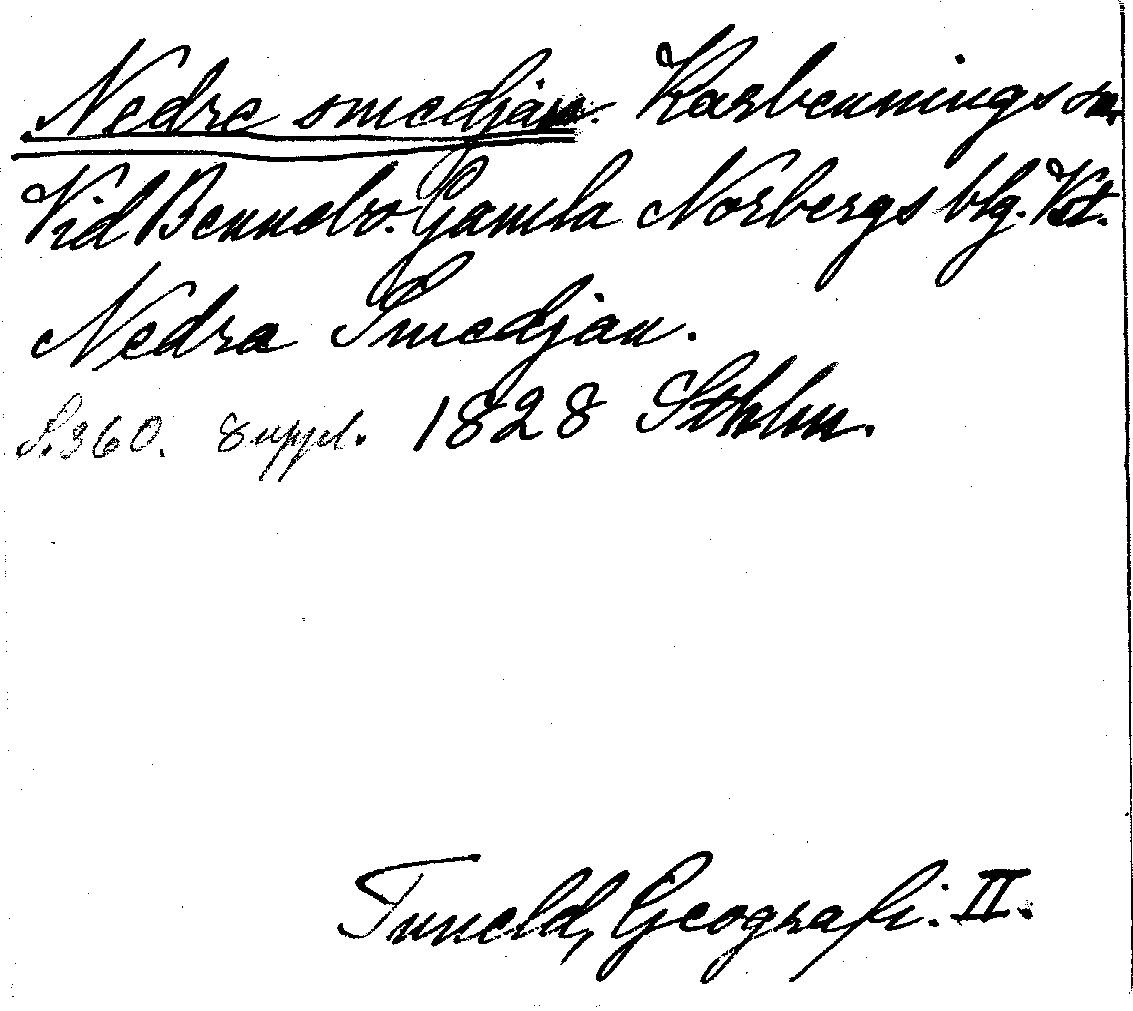 Nedre smedjan. Karbennings sn.
Vid Bennebo. Gamla Norbergs blg. Vst.
Nedra Smedjan.
S. 360. Suppl. 1828 Sthlm.
Tuneld, Geografi. II.